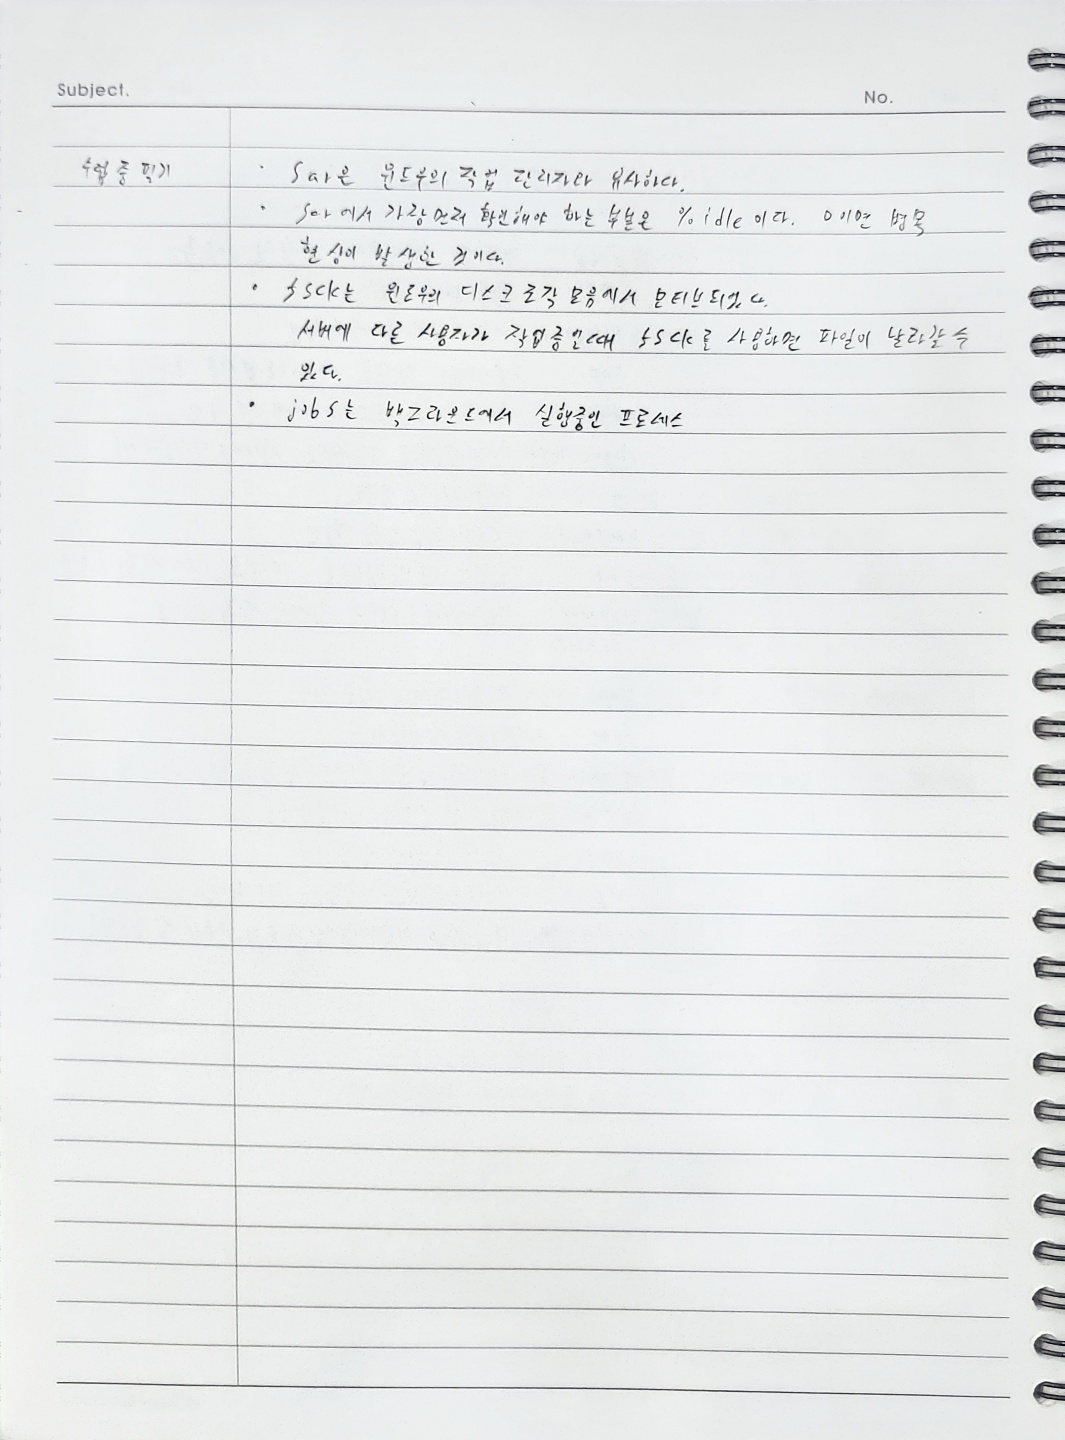 Subject.
No.
수업 중 필기
· sar은 윈도우의 작업 관리자와 유사하다.
· sar에서 가장 먼저 확인해야 하는 부분은 %idle이다. 0이면 병목
현상이 발생한 것이다.
· fsck는 윈도우의 디스크 조각 모음에서 모티브되었다.
서버에 다른 사용자가 작업중일때 fsck를 사용하면 파일이 날라갈 수
있다.
· jobs는 백그라운드에서 실행중인 프로세스